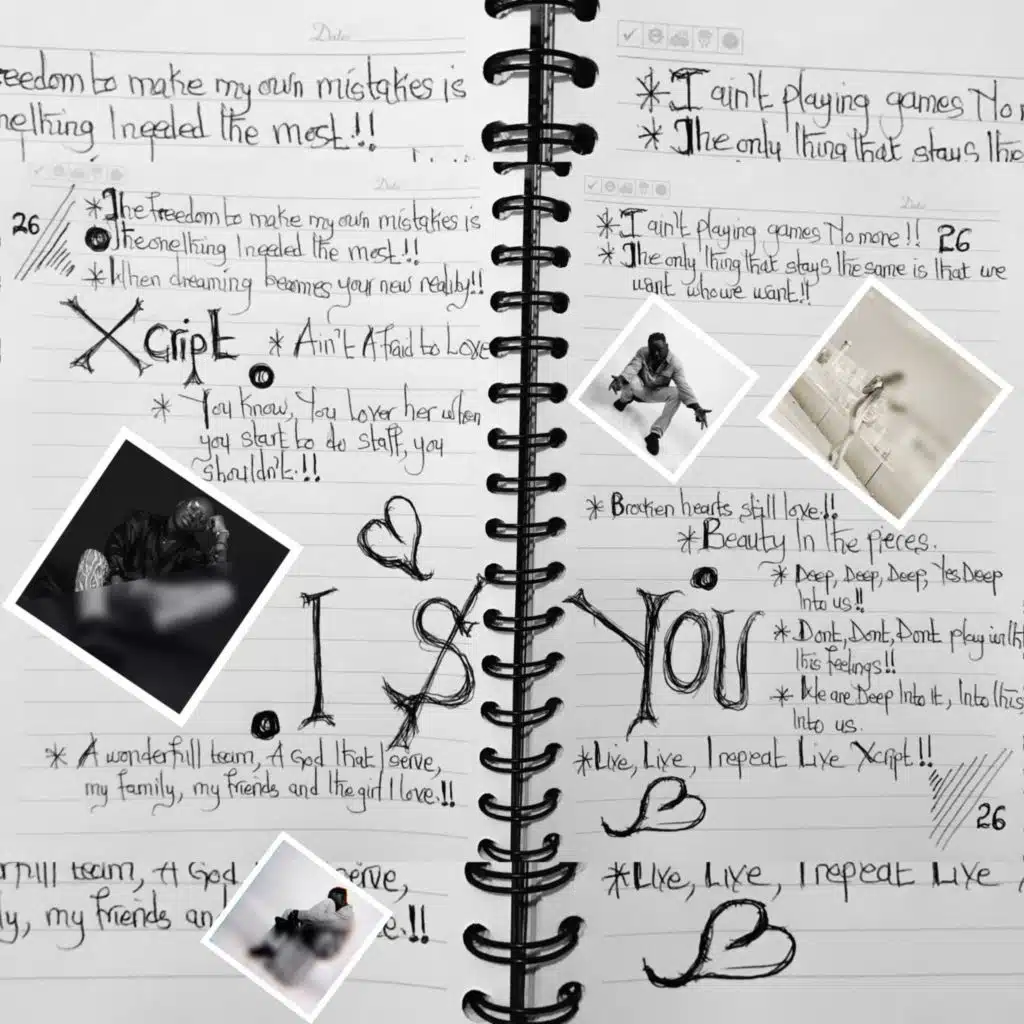 Date
eedom to make my own mistakes is
nething I needed the most!!
*I ain't playing games No
*The only thing that stays the
Date
26
*The freedom to make my own mistakes is
The one thing I needed the most!!
*When dreaming becomes your new reality!!
Xcript.
*Ain't Afraid to Love
*You know, You Lover her when
you start to do staff, you
shouldn't!!
I S
*A wonderfull team, A God that I serve,
my family, my friends and the girl I love!!
rfull team, A God
erve,
ly, my friends an
e!!
Date
*I ain't playing games No more!! 26
*The only thing that stays the same is that we
want who we want!!
*Broken hearts still love!!
*Beauty In the pieces.
*Deep, Deep, Deep, Yes Deep
Into us!!
YOU
*Dont, Dont, Dont play with
this feelings!!
*We are Deep Into it, Into this
Into us.
*Live, Live, I repeat Live Xcript!!
26
*Live, Live, I repeat Live